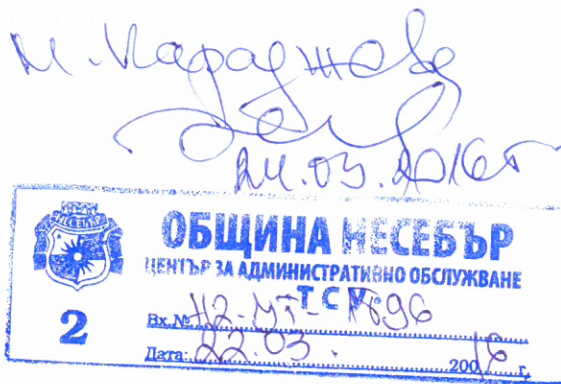 24.03.2016г
ОБЩИНА НЕСЕБЪР
ЦЕНТЪР ЗА АДМИНИСТРАТИВНО ОБСЛУЖВАНЕ
Т С У
2
Вх.№ Н2-УТ-1696
Дата: 22.03. 2016 г.